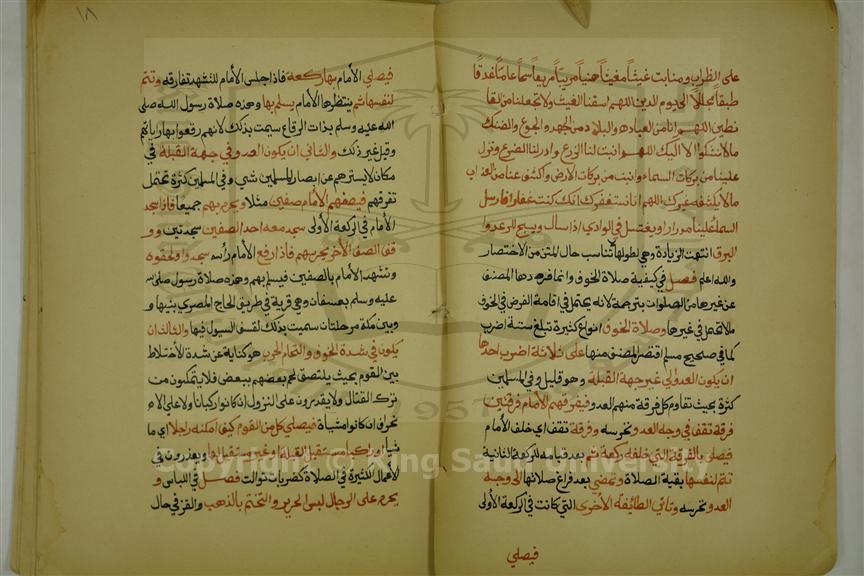 على الظراب ومنابت غيثا مغيثا هنيا مريا مريعا سحا عاما غدقا
طبقا مجللا الى يوم الدين اللهم اسقنا الغيث ولا تجعلنا من القا
نطين اللهم ان بالعباد والبلاد من الجهد والجوع والضنك
ما لا نشكوا الا اليك اللهم انبت لنا الزرع وادر لنا الضرع وانزل
علينا من بركات السماء وانبت من بركات الارض واكشف عنا من العذاب
ما لا يكشفه غيرك اللهم انا نستغفرك انك كنت غفارا فارسل
السما علينا مدرارا ويغتسل في الوادي اذا سال ويسبح للرعد و
البرق انتهت الزيادة وهي لطولها لا تناسب حال المتن من الاختصار
والله اعلم فصل في كيفية صلاة الخوف وانما افردها المصنف
عن غيرها من الصلوات بترجمة لانه يحتمل في اقامة الفرض في الخوف
ما لا يحتمل في غيرها وصلاة الخوف انواع كثيرة تبلغ ستة اضرب
كما في صحيح مسلم اقتصر المصنف منها على ثلاثة اضرب احدها
ان يكون العدو الى غير جهة القبلة وهو قليل وفي المسلمين
كثرة بحيث تقاوم كل فرقة منهم العدو فيفرقهم الامام فرقتين
فرقة تقف في وجه العدو تحرسه وفرقة تقف اي خلف الامام
فيصلي بالفرقة التي خلفه ركعة ثم بعد قيامه للركعة الثانية
تتم لنفسها بقية الصلاة وتمضي بعد فراغ صلاتها الى وجه
العدو تحرسه وتاتي الطائفة الاخرى التي كانت في الركعة الاولى
فيصلي
١٨
فيصلي الامام بها ركعة فاذا جلس الامام للتشهد تفارقه وتتم
لنفسها ثم ينتظرها الامام يسلم بها وهذه صلاة رسول الله صلى
الله عليه وسلم بذات الرقاع سميت بذلك لانهم رقعوا بها راياتهم
وقيل غير ذلك والثاني ان يكون العدو في جهة القبلة في
مكان لا يسترهم عن ابصار المسلمين شي وفي المسلمين كثرة تحتمل
تفرقهم فيصفهم الامام صفين مثلا ويحرم بهم جميعا فاذا سجد
الامام في الركعة الاولى سجد معه احد الصفين سجدتين وو
قف الصف الاخر يحرسهم فاذا رفع الامام رأسه سجدوا ولحقوه
وتشهد الامام بالصفين فيسلم بهم وهذه صلاة رسول صلى الله
عليه وسلم بعسفان وهي قرية في طريق الحاج المصري بينها و
وبين مكة مرحلتان سميت بذلك لعسف السيول فيها والثالث ان
يكون في شدة الخوف والتحام الحرب هو كناية عن شدة الاختلاط
بين القوم بحيث يلتصق لحم بعضهم ببعض فلا يتمكنون من
ترك القتال ولا يقدرون على النزول ان كانوا ركبانا ولا على الا
نحراف ان كانوا مشاة فيصلي كل من القوم كيف امكنه راجلا اي ما
شيا او راكبا مستقبل القبلة وغير مستقبل لها ويعذرون في
الافعال الكثيرة في الصلاة كضربات توالت فصل في اللباس و
يحرم على الرجال لبس الحرير والتختم بالذهب والقز في حال
Copyright © King Saud University
1957